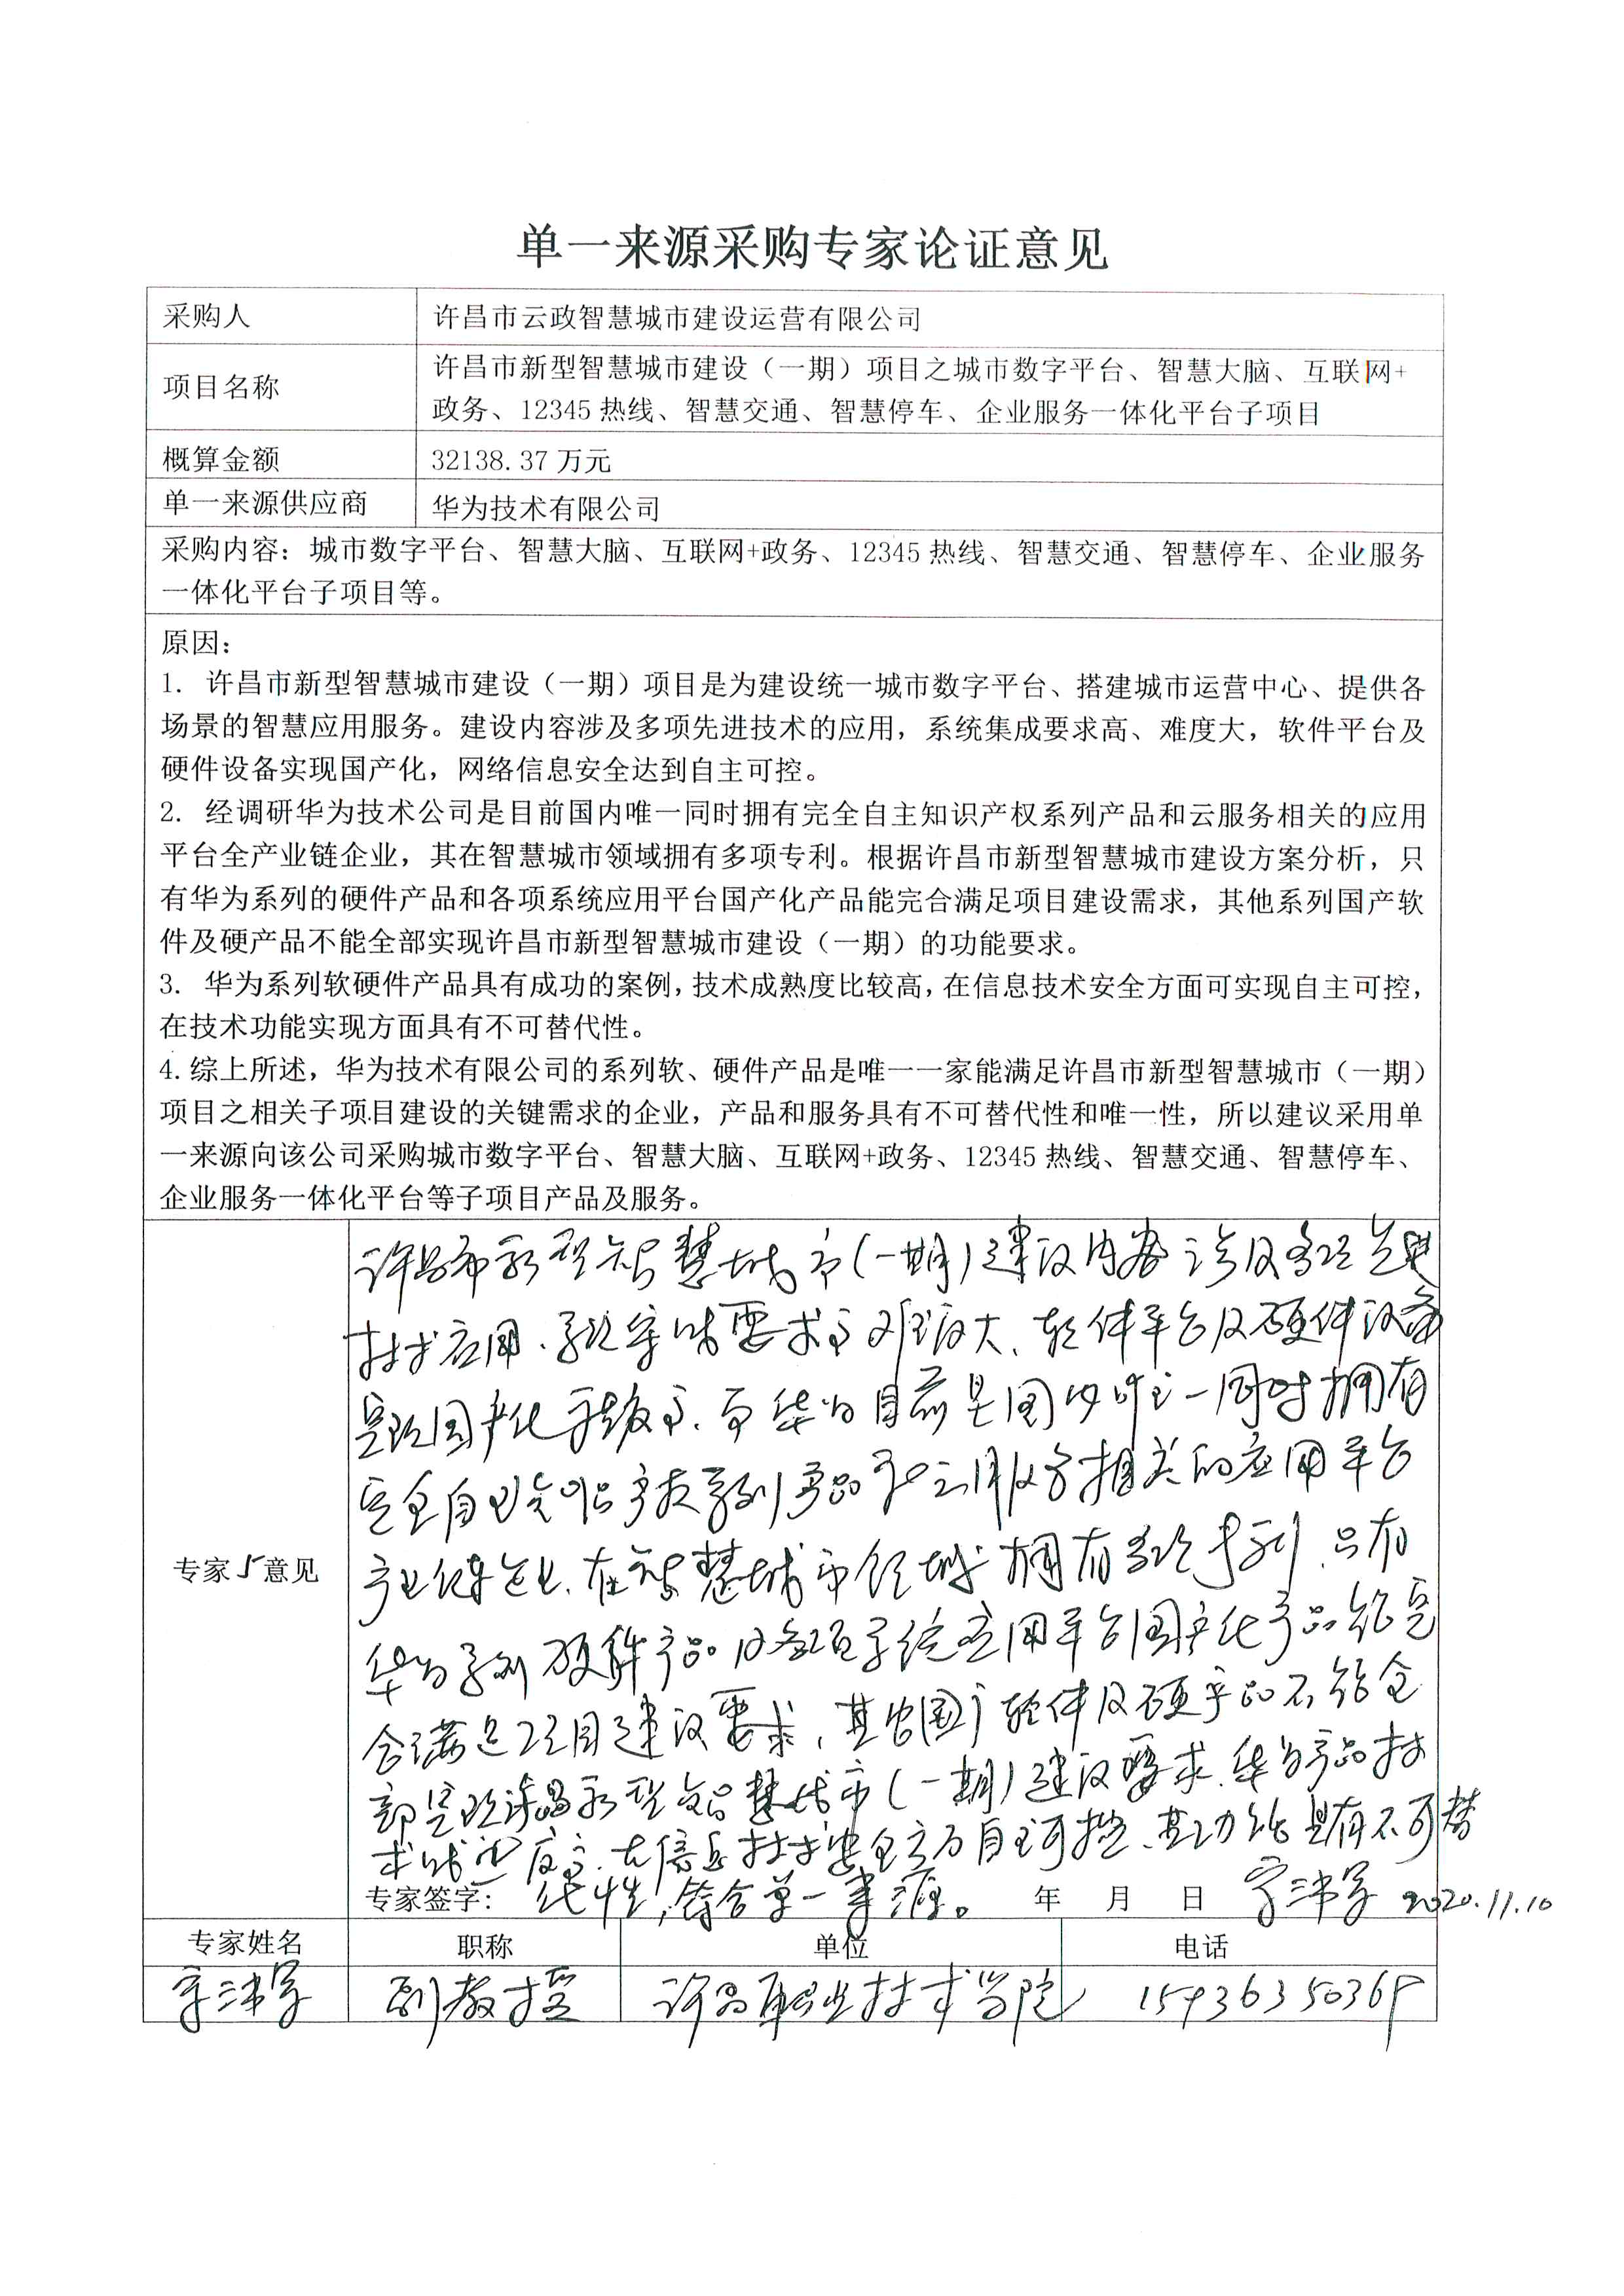 单一来源采购专家论证意见
采购人 许昌市云政智慧城市建设运营有限公司
项目名称 许昌市新型智慧城市建设（一期）项目之城市数字平台、智慧大脑、互联网+
政务、12345热线、智慧交通、智慧停车、企业服务一体化平台子项目
概算金额 32138.37万元
单一来源供应商 华为技术有限公司
采购内容：城市数字平台、智慧大脑、互联网+政务、12345热线、智慧交通、智慧停车、企业服务
一体化平台子项目等。
原因：
1. 许昌市新型智慧城市建设（一期）项目是为建设统一城市数字平台、搭建城市运营中心、提供各
场景的智慧应用服务。建设内容涉及多项先进技术的应用，系统集成要求高、难度大，软件平台及
硬件设备实现国产化，网络信息安全达到自主可控。
2. 经调研华为技术公司是目前国内唯一同时拥有完全自主知识产权系列产品和云服务相关的应用
平台全产业链企业，其在智慧城市领域拥有多项专利。根据许昌市新型智慧城市建设方案分析，只
有华为系列的硬件产品和各项系统应用平台国产化产品能完合满足项目建设需求，其他系列国产软
件及硬产品不能全部实现许昌市新型智慧城市建设（一期）的功能要求。
3. 华为系列软硬件产品具有成功的案例，技术成熟度比较高，在信息技术安全方面可实现自主可控，
在技术功能实现方面具有不可替代性。
4.综上所述，华为技术有限公司的系列软、硬件产品是唯一一家能满足许昌市新型智慧城市（一期）
项目之相关子项目建设的关键需求的企业，产品和服务具有不可替代性和唯一性，所以建议采用单
一来源向该公司采购城市数字平台、智慧大脑、互联网+政务、12345热线、智慧交通、智慧停车、
企业服务一体化平台等子项目产品及服务。
许昌市新型智慧城市（一期）建设内容涉及多项先进
技术应用、系统集成要求高难度大、软件平台及硬件设备
实现国产化 高、而华为目前是国内唯一同时拥有
完全自主知识产权系列产品和云服务相关的应用平台
产业链企业、在智慧城市领域拥有多项专利、只有
专家5意见
华为系列硬件产品及各项系统应用平台国产化产品能完
合满足项目建设要求，其它国产软件及硬产品不能全
部实现许昌新型智慧城市（一期）建设要求、华为产品技
术成熟度高、在信息技术安全方面自主可控、其功能具有不可替
专家签字： 代性，符合单一来源。 年 月 日 2020.11.10
专家姓名 职称 单位 电话
副教授 许昌职业技术学院